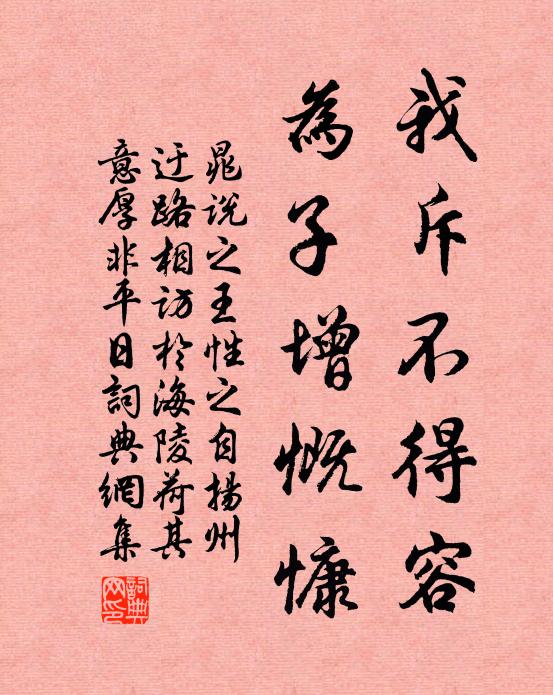 我斥不得容
為子增慨慷
晁说之王性之自揚州
迂路相访於海陵荷其
意厚非平日詞典網集
詞典网印